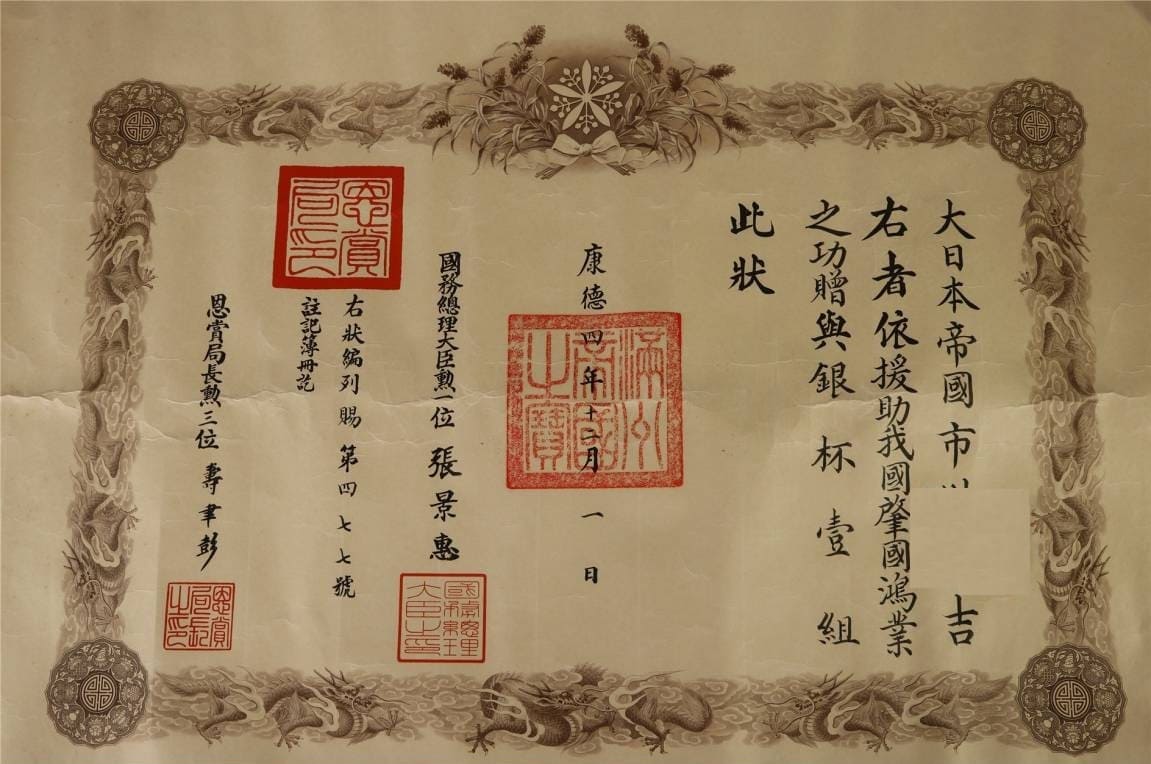 大日本帝國市 吉
右者依援助我國肇國鴻業
之功贈與銀杯壹組
此狀
康德四年十二月一日
滿州帝國之寶
國務總理大臣勲一位 張景惠
國務總理大臣之印
右狀編列賜第四七七號
註記簿冊訖
恩賞局印
恩賞局長勲三位 壽聿彭
恩賞局長之印